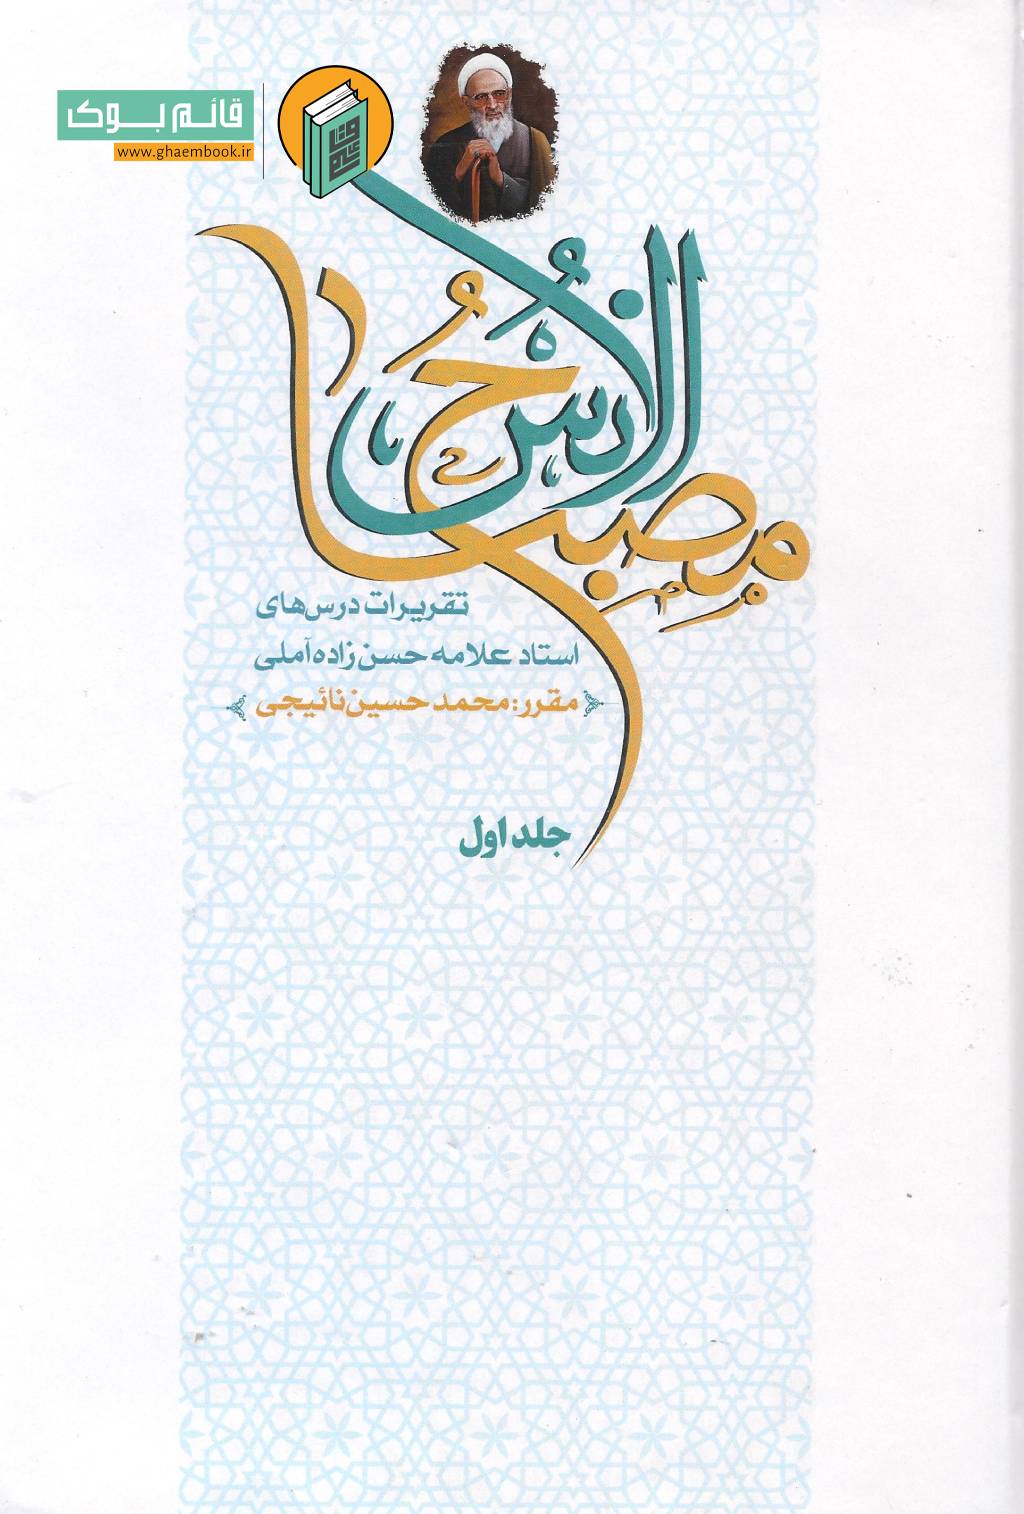 قائم بوک
www.ghaembook.ir
مصباح الانس
تقریرات درس‌های
استاد علامه حسن زاده آملی
مقرر: محمد حسین نائیجی
جلد اول